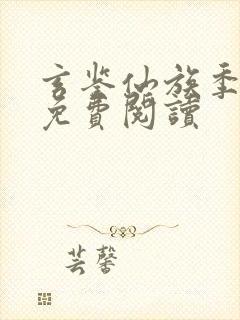 玄鉴仙族季
免費閱讀
芸馨